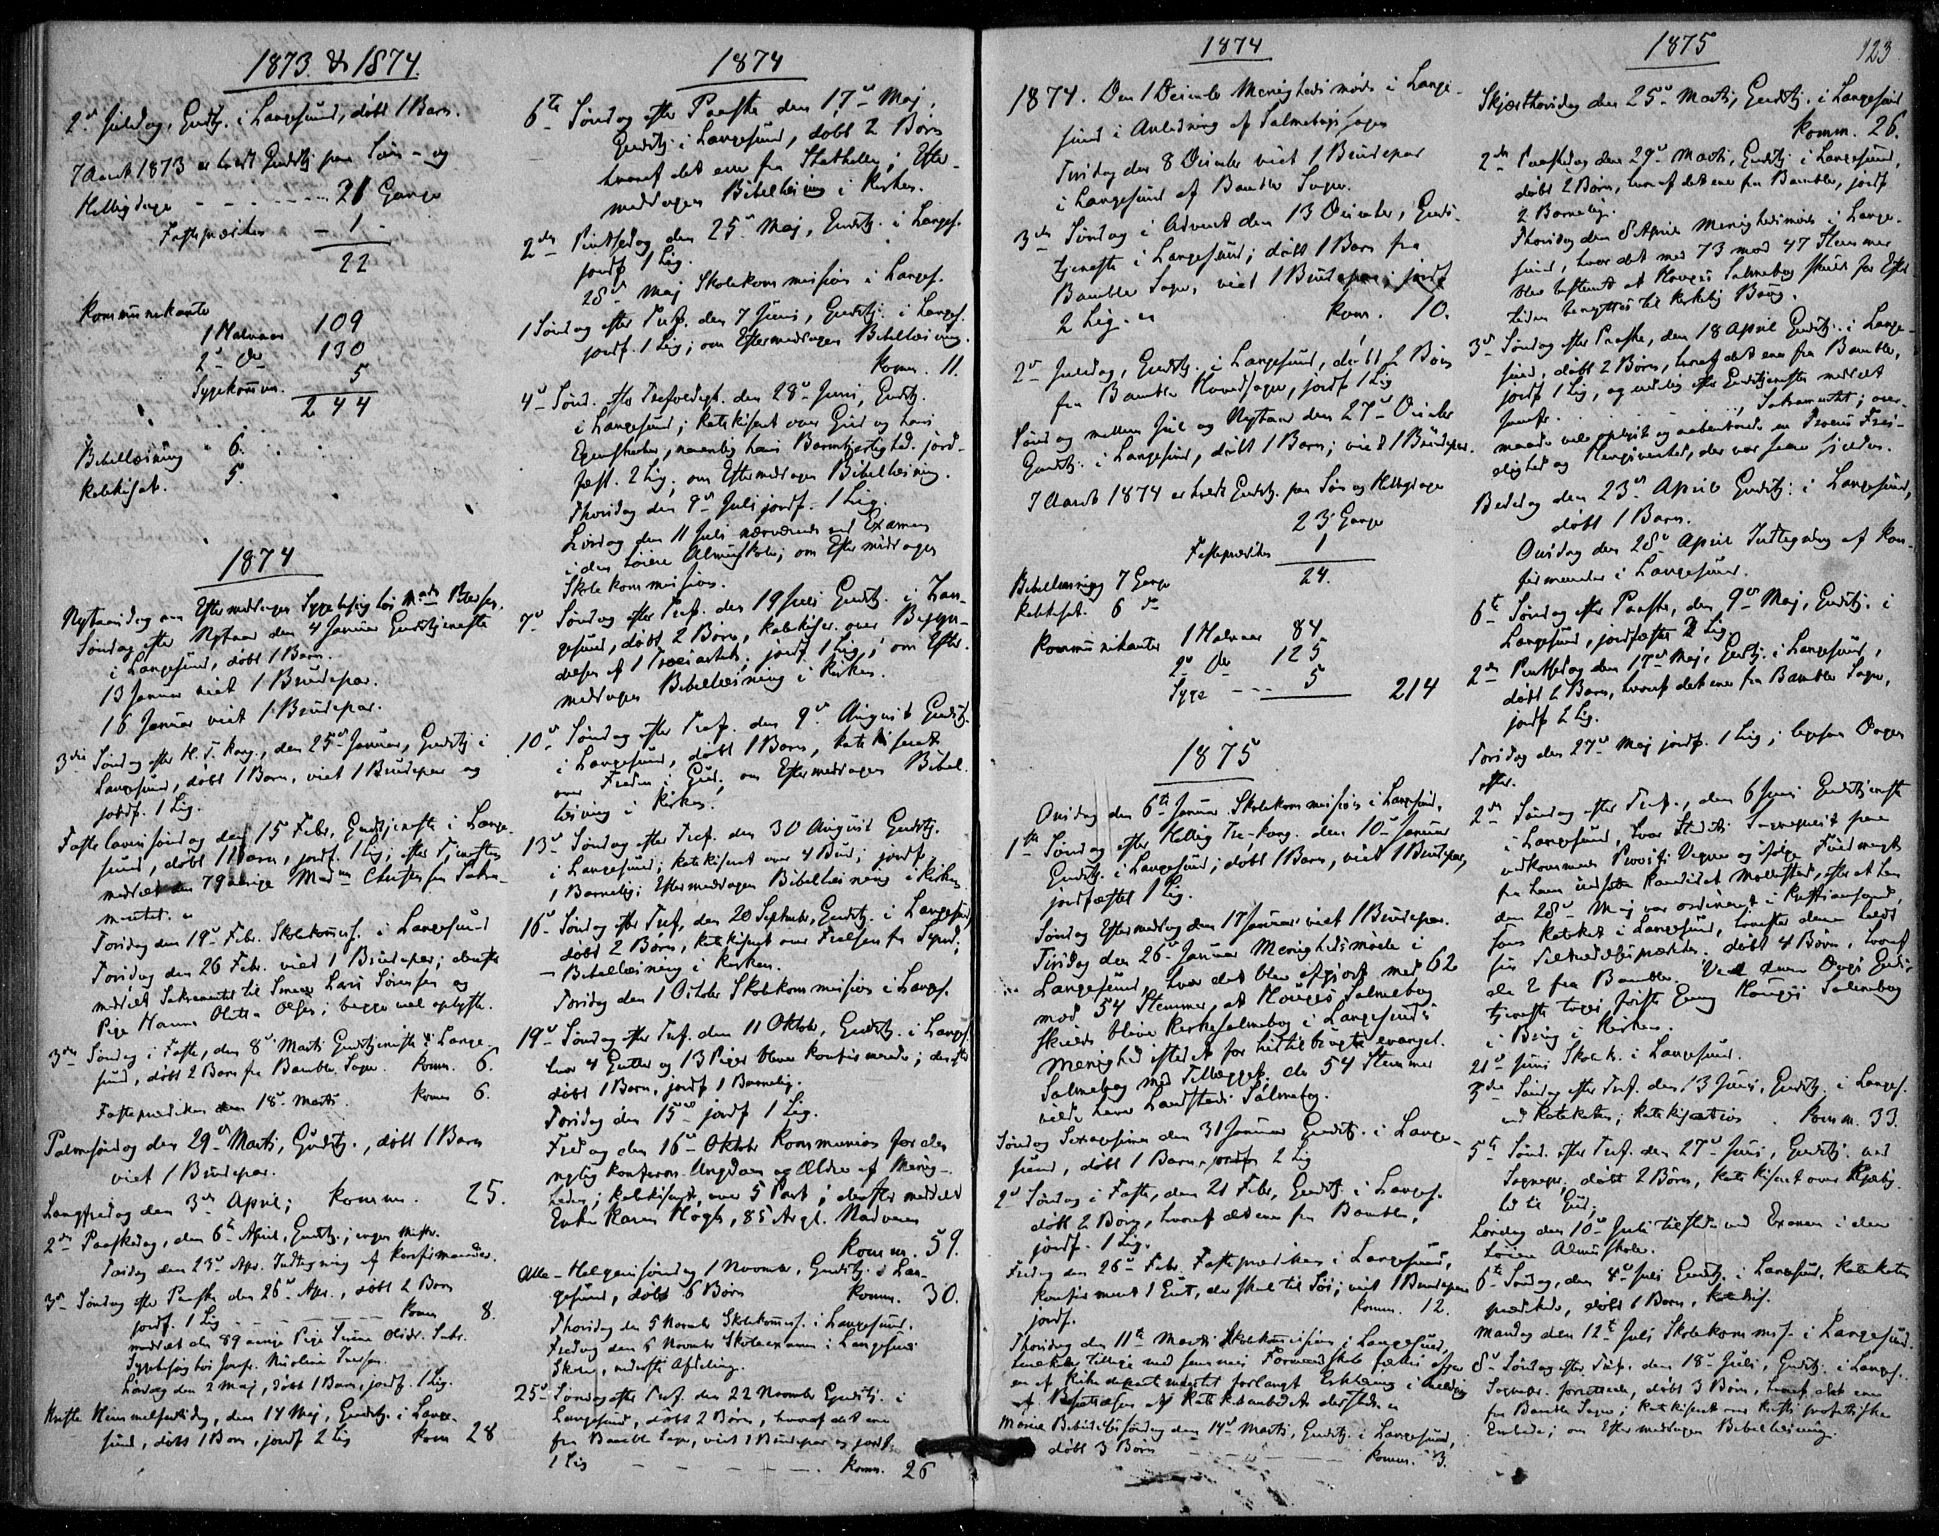 1873 & 1874.
2den Juledag, Gudstj. i Langesund, døbt 1 Barn.
I Aaret 1873 er holdt Gudstj. paa Søn- og
Helligdage - - - - 21 Gange
Fasteprædiken - 1 -
22
Kommunikanter
1 Halvaar 109
2d Do 130
Sygekomm. 5
244
Bibellæsning 6.
Katekisat. 5.
1874
Nytaarsdag om Eftermiddagen Sygebesøg hos Mad.
Søndag efter Nytaar den 4 Januar Gudstjeneste
i Langesund, døbt 1 Barn.
13 Januar viet 1 Brudepar.
16 Januar viet 1 Brudepar.
3die Søndag efter H. T. Kong., den 25de Januar, Gudstj. i
Langesund, døbt 1 Barn, viet 1 Brudepar og
jordf. 1 Lig.
Fastelavnssøndag den 15 Febr., Gudstjeneste i Lange-
sund, døbt 1 Barn, jordf. 1 Lig; efter Tjenesten
meddelt den 79 aarige Madm Christensen Sakra-
mentet.
Torsdag den 19de Febr. Skolekomms. i Langesund
Torsdag den 26 Febr. viet 1 Brudepar; derefter
meddelt Sakramentet til Lars Sørensen og
Pige Hanna Olette Olsen; begge vel oplyste.
3die Søndag i Faste, den 8de Marts Gudstjeneste i Lange-
sund, døbt 2 Børn fra Bamble Sogn. Komm. 6.
Fasteprædiken den 18de Marts. Komm 6.
Palmesøndag den 29de Marts, Gudstj., døbt 1 Barn
viet 1 Brudepar.
Langfredag den 3die April; Komm. 25.
2den Paaskedag, den 6te April, Gudstj.; ingen
Torsdag den 23de Apr. Indtegning af Konfirmander.
3die Søndag efter Paaske den 26de Apr., døbt 2 Børn
jordf. 1 Lig - - - - Komm 8.
meddelt den 89 aarige Pige Sakr.
Sygebesøg hos Nicoline Iversen.
Lørdag den 2 Maj, døbt 1 Barn, jordf. 1 Lig.
Kristi Himmelfartsdag, den 14 Maj, Gudstj. i Lange-
sund, døbt 1 Barn, jordf 2 Lig Kom 28
1874
6te Søndag efter Paaske den 17de Maj,
Gudstj. i Langesund, døbt 2 Børn
hvoraf det ene fra Stathelle; Efter-
middagen Bibellæsning i Kirken.
2den Pintsedag den 25de Maj, Gudstj. i Langes.
jordf 1 Lig.
28de Maj Skolekommission i Langes.
1 Søndag efter Tref. den 7 Juni, Gudstj. i Langes.
jordf. 1 Lig; om Eftermiddagen Bibellæsning.
Komm. 11.
4de Sønd. efter Trefoldigh. den 28de Juni, Gudstj.
i Langesund; katekiseret over Gud og hans
Egenskaber, navnlig hans Barmhjertighed. jord-
fæst. 2 Lig; om Eftermiddagen Bibellæsning.
Thorsdag den 9de Juli jordf. 1 Lig.
Lørdag den 11 Juli nærværende ved Examen
i den Almueskole; om Eftermiddagen
Skolekommission.
7de Søndag efter Tref. den 19 Juli Gudstj. i Lan-
gesund, døbt 2 Børn, katekiser. over Begyn-
delsen af 1 Troesartikel; jordf 1 Lig; om Efter-
middagen Bibellæsning i Kirken.
10de Søndag efter Tref. den 9de August Gudstj.
i Langesund, døbt 1 Barn, katekiseret
over Freden i Gud; om Eftermiddagen Bibel-
læsning i Kirken.
13de Søndag efter Tref. den 30 August Gudstj.
i Langesund; katekiseret over 4 Bud; jordf
1 Barnelig; Eftermiddagen Bibellæsning i Kirken
16de Søndag efter Tref. den 20 September, Gudstj. i Langesund
døbt 2 Børn, katekiseret over Frelsen fra Synd;
- Bibellæsning i Kirken.
Torsdag den 1 October Skolekommission i Langes.
19de Søndag efter Tref. den 11 Oktober, Gudstj. i Langes.
hvor 4 Gutter og 13 Piger bleve konfirmerede; derefter
døbt 1 Barn, jordf 1 Barnelig.
Torsdag den 15de jordf 1 Lig.
Fredag den 16de Oktober Kommunion for den
nylig konfirm. Ungdom og Ældre af Menig-
heden; katekiseret over 5 Part; derefter meddelt
Enke Karen Høgh, 85 Aar gl. Nadveren
Komm. 59.
Alle-Helgensøndag 1 November, Gudstj. i Lan-
gesund, døbt 6 Børn Komm. 30.
Thorsdag den 5 November Skolekomms. i Langesund.
Fredag den 6 November Skoleexamen i Langesund
Skole, nederste Afdeling.
25de Søndag efter Tref. den 22 November Gudstj. i
Langesund, døbt 2 Børn, hvoraf det ene
fra Bamble Sogn, viet 1 Brudepar og jordf.
1 Lig - - - - Komm. 26
1874
1874. Den 1 December Menighedsmøde i Lange-
sund i Anledning af Salmebogssagen
Tirsdag den 8 December viet 1 Brudepar
i Langesund af Bamble Sogn.
3die Søndag i Advent den 13 December, Guds-
tjeneste i Langesund; døbt 1 Barn fra
Bamble Sogn, viet 1 Brudepar; jordf
2 Lig. Kom. 10.
2den Juledag, Gudstj. i Langesund, døbt 2 Børn
fra Bamble Hovedsogn, jordf 1 Lig
Søndag mellem Jul og Nytaar den 27de December
Gudstj. i Langesund, døbt 1 Barn; viet 1 Brudepar.
I Aaret 1874 er holdt Gudstj. paa Søn og Helligdage
23 Gange
Fasteprædiken 1
24.
Bibellæsning 7 Gange
Katekisat. 6 do
Kommunikanter 1 Halvaar 84
2det Do 125
Syge - - - 5 214
1875
Onsdag den 6te Januar Skolekommission i Langesund.
1ste Søndag efter Hellig Tre-Kong. den 10de Januar
Gudstj. i Langesund; døbt 1 Barn, viet 1 Brudepar,
jordfæstet 1 Lig.
Søndag Eftermiddag den 17 Januar viet 1 Brudepar.
Tirsdag den 26de Januar Menighedsmøde i
Langesund, hvor det blev afgjort med 62
mod 54 Stemmer, at Hauges Salmebog
skulde blive Kirkesalmebog i Langesunds
Menighed istedet for hidtil brugte evangel.
Salmebog med Tillægget; de 54 Stemmer
vilde have Landstads Salmebog.
Søndag Sexagesima den 31 Januar Gudstj. i Lange-
sund, døbt 1 Barn, jordf. 2 Lig
2den Søndag i Faste, den 21 Febr., Gudstj. i Langes.
døbt 2 Børn, hvoraf det ene fra Bamble,
jordf. 1 Lig.
Fredag den 26de Febr. Fasteprædiken i Langesund,
konfirmeret 1 Gut, der skal til Søs; viet 1 Brudepar
jordf. Komm. 12.
Thorsdag den 11te Marts Skolekommission i Langesund,
tillige med Formandskab
en af Kirkedepartementet forlangt Erklæring i Anledning
af Besættelsen af Kateketembedet dersteds
Mariæ Bebudelsessøndag den 14de Marts, Gudstj. i Langesund,
døbt 3 Børn - - - - Komm. 3.
1875
123
Skjærthorsdag den 25de Marts, Gudstj. i Langesund
Komm. 26.
2den Paaskedag den 29de Marts, Gudstj. i Langesund,
døbt 2 Børn, hvoraf det ene fra Bamble, jordf.
2 Barnelig.
Thorsdag den 8 April Menighedsmøde i Lange-
sund, hvor det med 73 mod 47 Stemmer
blev bestemt at Hauges Salmebog skulde for Efter-
tiden benyttes til kirkelig Brug.
3die Søndag efter Paaske, den 18 April Gudstj. i Lange-
sund, døbt 2 Børn, hvoraf det ene fra Bamble,
jordf 1 Lig, og endelig efter Gudstjenesten meddelt
Jomfr. Sakramentet; over-
maade vel oplyst og aabenbarede en Troens Frei-
dighed og Hengivenhed, der var saare sjelden.
Bededag den 23de April Gudstj. i Langesund,
døbt 1 Barn.
Onsdag den 28de April Indtegning af Kon-
firmander i Langesund.
6te Søndag efter Paaske, den 9de Maj, Gudstj. i
Langesund, jordfæstet 2 Lig
2den Pintsedag den 17de Maj, Gudstj. i Langesund,
døbt 2 Børn, hvoraf det ene fra Bamble Sogn,
jordf 2 Lig.
Torsdag den 27de Maj jordf. 1 Lig; ligesaa Dagen
efter.
2den Søndag efter Tref., den 6 Juni Gudstjeneste
i Langesund, hvor Stedets Sogneprest paa
vedkommende Provsts Vegne og ifølge Fuldmagt
fra ham indsatte Kandidat Møllestad, efter at han
den 28de Maj var ordineret i Kristianssand,
som Kateket i Langesund, hvorefter denne holdt
sin Tiltrædelsesprædiken. døbt 4 Børn, hvoraf
de 2 fra Bamble. Ved denne Dags Guds-
tjeneste toges første Gang Hauges Salmebog
i Brug i Kirken.
21de Juni Skolek. i Langesund.
3die Søndag efter Tref. den 13 Juni, Gudstj. i Langes.
ved Kateketen; katekisation. Komm. 33.
5te Sønd. efter Tref. den 27de Juni, Gudstj. ved
Sognepr., døbt 2 Børn, katekiseret over Kjærlig-
hed til Gud;
Lørdag den 10de Juli tilstede ved Examen i den
Almueskole.
6te Søndag, den 4de Juli Gudstj. i Langesund, Kateketen
prædikede, døbt 1 Barn, Katekis.
Mandag den 12te Juli Skolekommis. i Langesund.
8de Søndag efter Tref. den 18de Juli, Gudstj. i Langes.
Sognepr. forrettede, døbt 3 Børn, hvoraf det ene
fra Bamble Sogn; katekiseret over Kristi profetiske
Embede; om Eftermiddagen Bibellæsning.